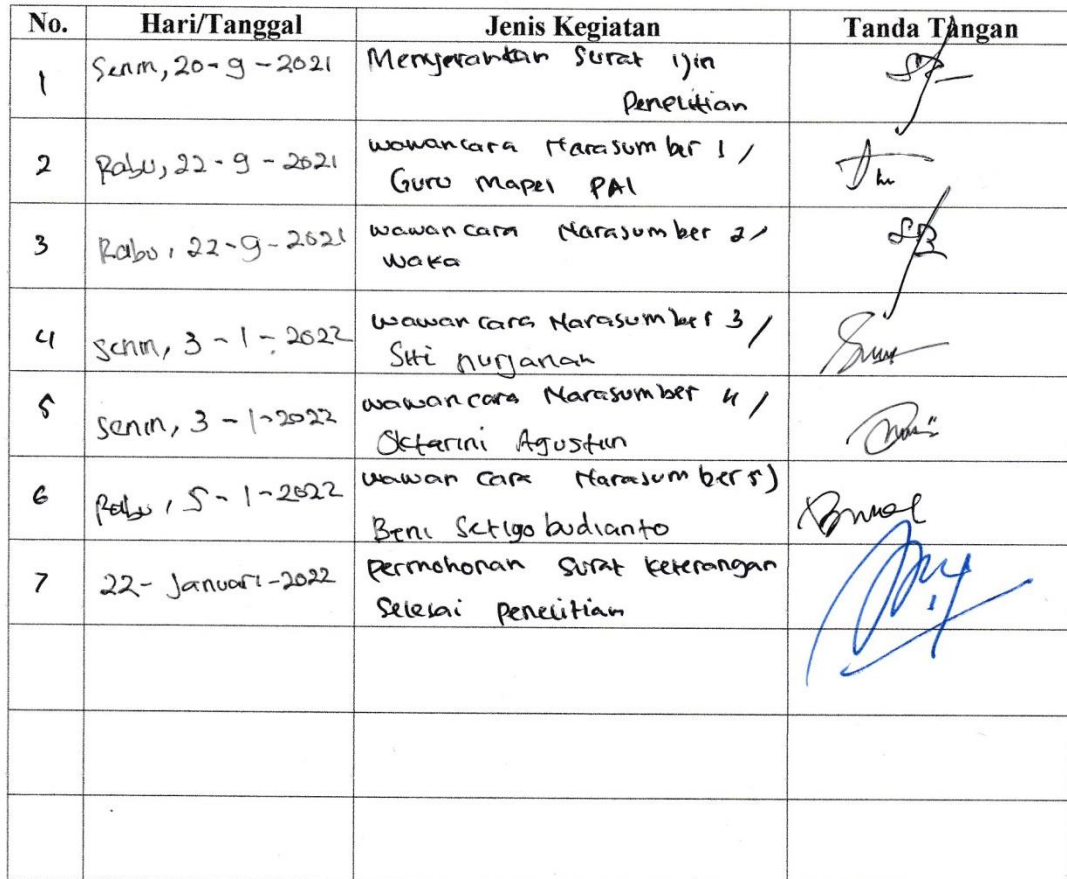 No. Hari/Tanggal Jenis Kegiatan Tanda Tangan
1 Senin, 20-9-2021 Menyerahkan Surat ijin
Penelitian
2 Rabu, 22-9-2021 wawancara Narasumber 1 /
Guru Mapel PAI
3 Rabu, 22-9-2021 wawancara Narasumber 2 /
waka
4 senin, 3-1-2022 wawancara Narasumber 3 /
Siti nurjanah
5 senin, 3-1-2022 wawancara Narasumber 4 /
Oktarini Agustin
6 Rabu, 5-1-2022 wawancara Narasumber 5)
Beni Setigobudianto
7 22-Januari-2022 permohonan surat keterangan
Selesai penelitian